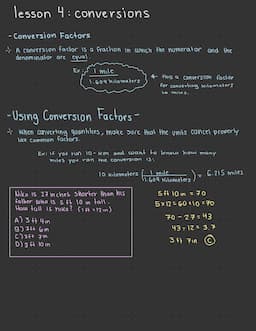 lesson 4: conversions
-Conversion Factors
A conversion factor is a fraction in which the numerator and the
denominator are equal.
Ex: 1 mile
1.609 kilometers
← this is conversion factor
for converting kilometers
to miles.
-Using Conversion Factors-
When converting quantities, make sure that the units cancel properly
like common factors.
Ex: if you run 10-km and want to know how many
miles you ran the conversion is:
10 kilometers (1 mile
1.609 kilometers) = 6.215 miles
Niko is 27 inches shorter than his
father who is 5 ft 10 in tall.
How tall is Niko? (1 ft = 12 in)
A) 3 ft 4 in
B) 3 ft 6 in
C) 3 ft 7 in
D) 3 ft 10 in
5 ft 10 in = 70
5 × 12 = 60 + 10 = 70
70 - 27 = 43
43 ÷ 12 = 3.7
3 ft 7 in C